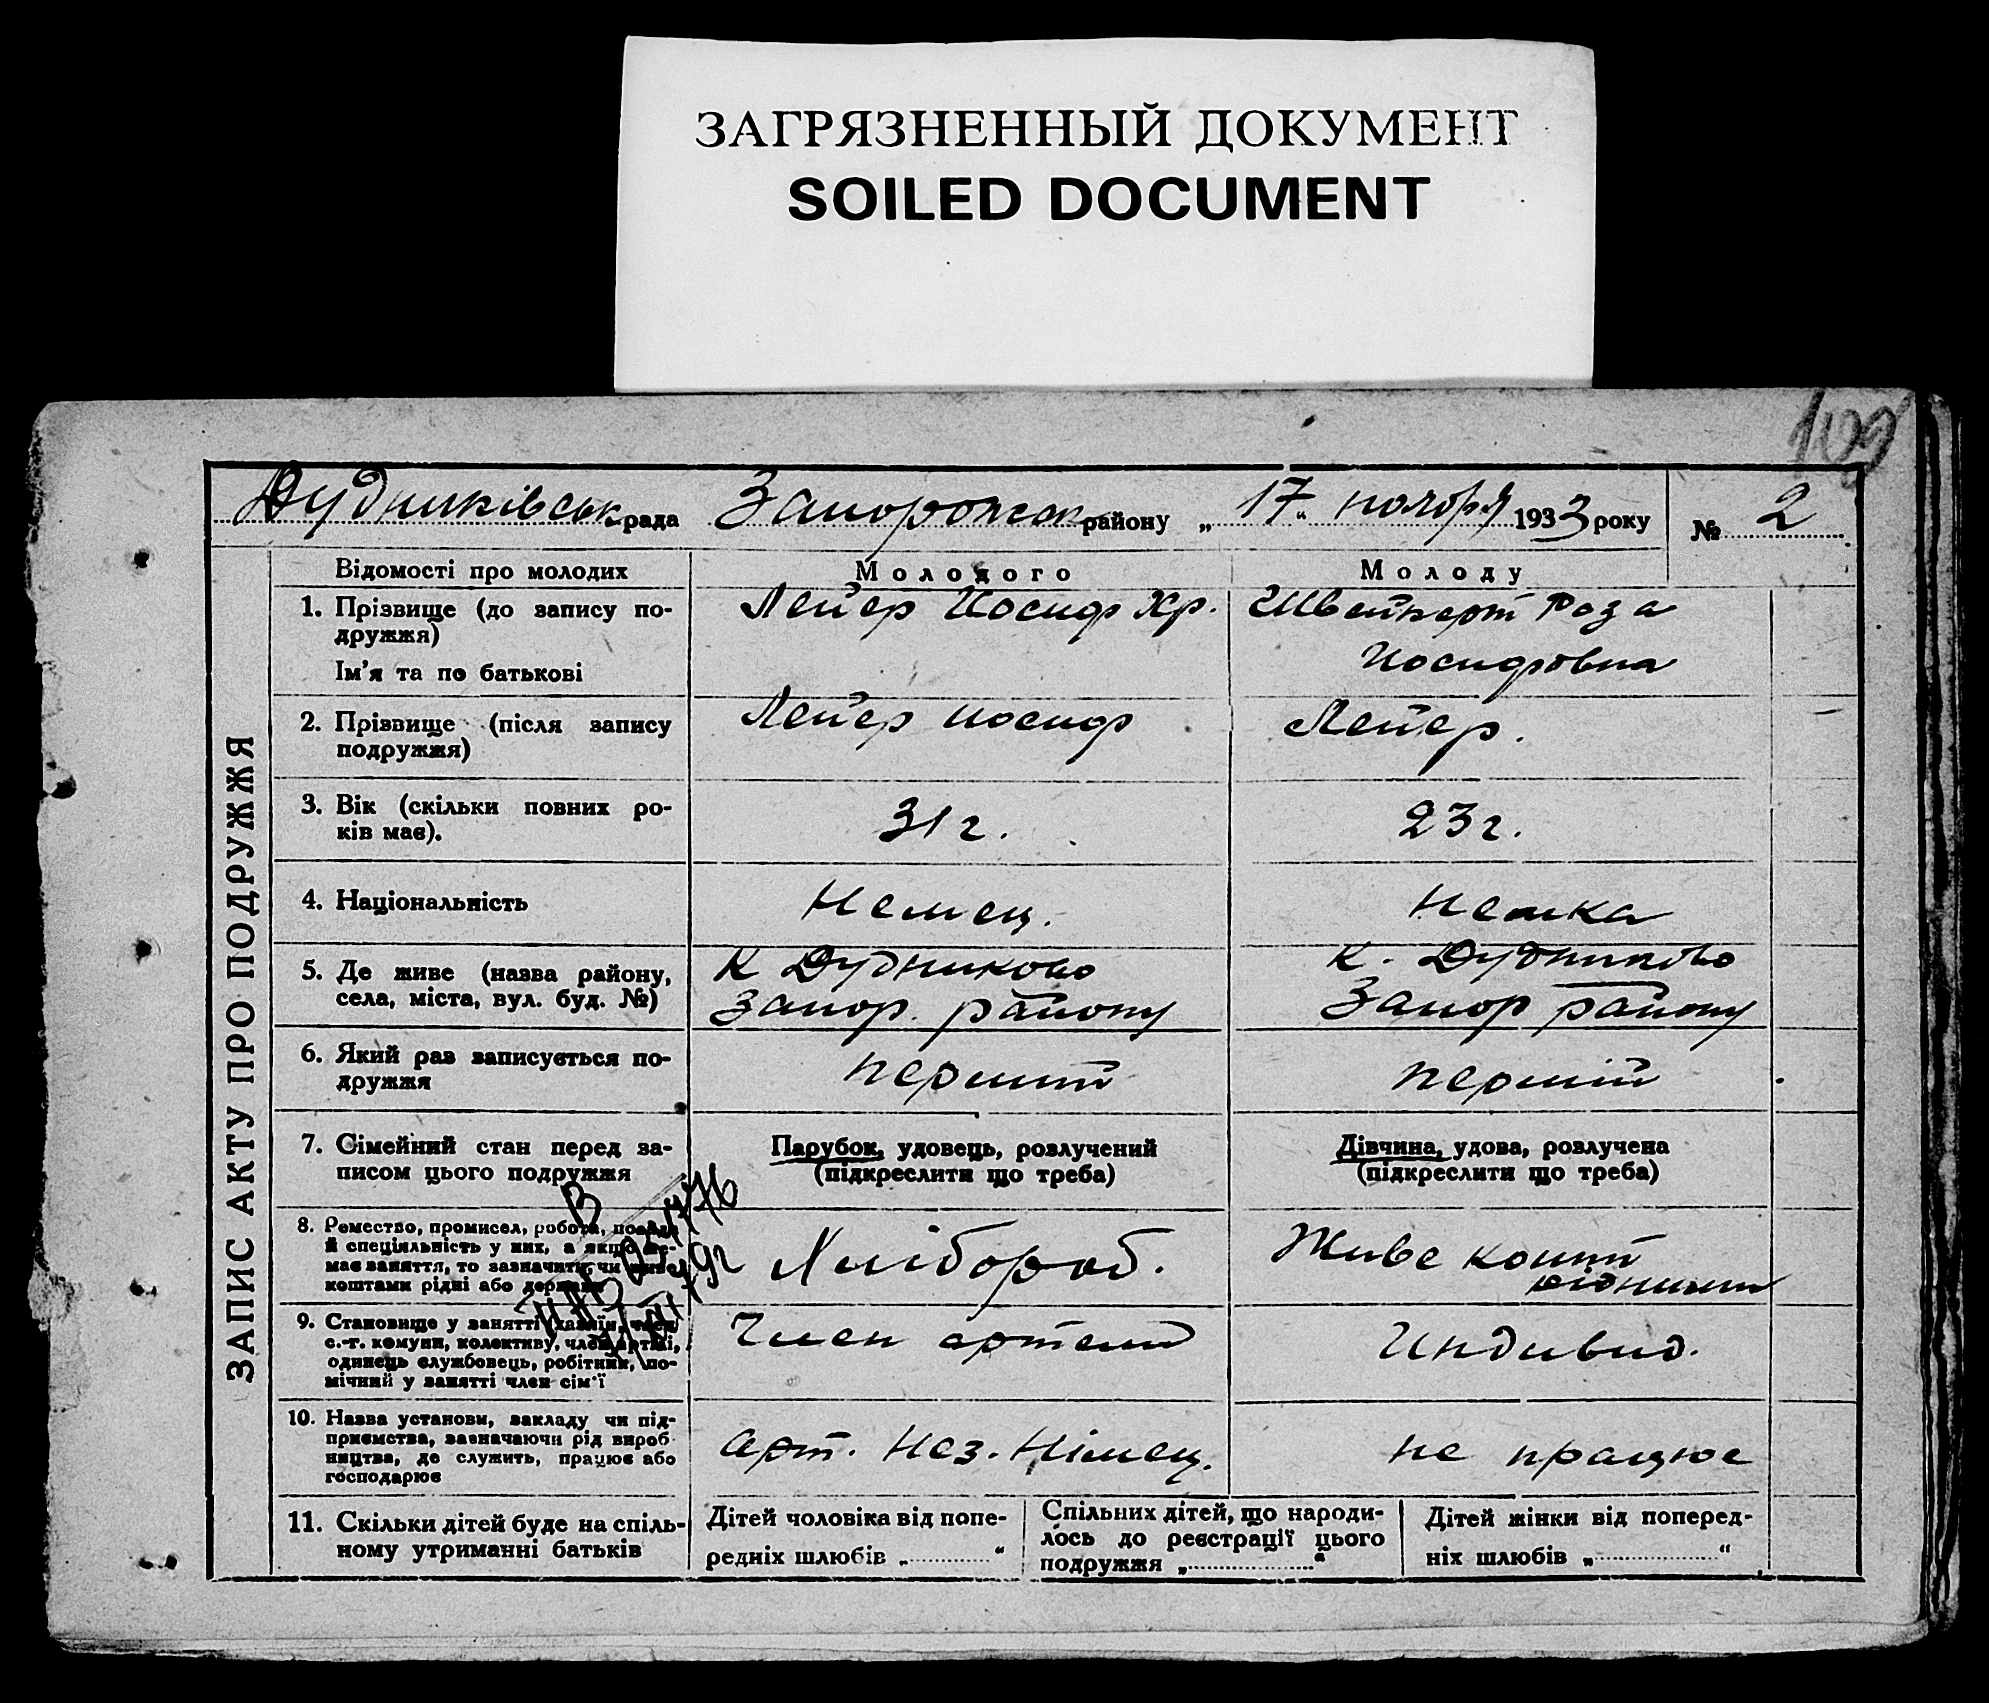 ЗАГРЯЗНЕННЫЙ ДОКУМЕНТ
SOILED DOCUMENT
109
Дудниківськ рада Запорожск району „17“ ноября 1933 року № 2
ЗАПИС АКТУ ПРО ПОДРУЖЖЯ
Відомості про молодих Молодого Молоду
1. Прізвище (до запису по-
дружжя)
Ім'я та по батькові
Лейер Иосиф Хр.
Швейкерт Роза
Иосифовна
2. Прізвище (після запису
подружжя)
Лейер Иосиф
Лейер.
3. Вік (скільки повних ро-
ків має).
31 г.
23 г.
4. Національність
Немец.
немка
5. Де живе (назва району,
села, міста, вул. буд. №)
К Дудниково
Запор. району
К. Дудниково
Запор району
6. Який раз записується по-
дружжя
перший
перший
7. Сімейний стан перед за-
писом цього подружжя
Парубок, удовець, розлучений
(підкреслити що треба)
Дівчина, удова, розлучена
(підкреслити що треба)
8. Ремество, промисел, робота, посада
й спеціяльність у них, а якщо не-
має заняття, то зазначити, чи живе
коштами рідні або держави
Хлібороб.
Живе кошт
рідними
9. Становище у занятті: хазяїн, член
с.-г. комуни, колективу, член артілі,
одинець службовець, робітник, по-
мічний у занятті член сім'ї
Член артели
Индивид.
10. Назва установи, закладу чи під-
приємства, зазначаючи рід вироб-
ництва, де служить, працює або
господарює
Арт. Нез. Німец.
не працює
11. Скільки дітей буде на спіль-
ному утриманні батьків
Дітей чоловіка від попе-
редніх шлюбів „ “
Спільних дітей, що народи-
лось до реєстрації цього
подружжя „ “
Дітей жінки від поперед-
ніх шлюбів „ “